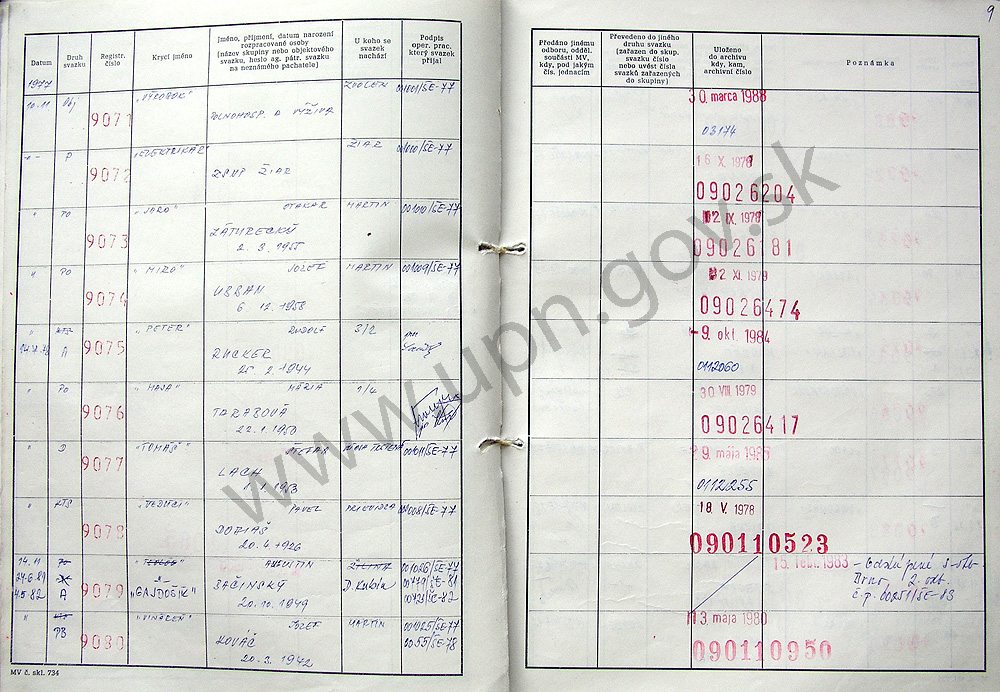 9
Datum
Druh svazku
Registr. číslo
Krycí jméno
Jméno, příjmení, datum narození
rozpracované osoby
(název skupiny nebo objektového
svazku, heslo ag. pátr. svazku
na neznámého pachatele)
U koho se
svazek
nachází
Podpis
oper. prac.
který svazek
přijal
Předáno jinému
odboru, odděl.
součásti MV,
kdy, pod jakým
čís. jednacím
Převedeno do jiného
druhu svazku
(zařazen do skup.
svazku číslo
nebo uvést čísla
svazků zařazených
do skupiny)
Uloženo
do archivu
kdy, kam,
archivní číslo
Poznámka
1977
10.11 Obj 9071 "VÝROBOK" POĽNOHOSP. A VÝŽIVA ZVOLEN 001001/ŠE-77 30. marca 1988
03174
P 9072 "ELEKTRIKÁR" ZSNP ŽIAR ŽIAR 001000/ŠE-77 16 X. 1978
09026204
" PO 9073 "JARO" OTAKAR MARTIN 001010/ŠE-77 12 IX. 1978
ZÁTURECKÝ 09026181
2. 3. 1955
" PO 9074 "MIRO" JOZEF MARTIN 001009/ŠE-77 12 XI. 1979
URBAN 09026474
6. 12. 1958
" KTS 9075 "PETER" RUDOLF 3/2 -9. okt. 1984
A RUCKER 0112060
25 2. 1944
" PO 9076 "MAJA" MÁRIA 1/4 30 VIII. 1979
TARABOVÁ 09026417
22. 1. 1950
" D 9077 "TOMÁŠ" ŠTEFAN 001011/ŠE-77 9. mája
LACH 0112255
1. 1. 1953
" KTS 9078 "VEDÚCI" PAVEL PRIEVIDZA 001008/ŠE-77 18 V. 1978
DOBIAŠ 090110523
20. 4. 1926
14.11 PO 9079 AUGUSTIN ŽILINA 001026/ŠE-77 15. febr. 1983
24.6.81 BAČINSKÝ D. Kubín 00779/ŠE-81 Brno, 2. odb.
4.5.82 A "GAJDOŠÍK" 20. 10. 1949 00423/ŠE-82 č.p. 00251/ŠE-83
" KTS 9080 "VINÁREŇ" JOZEF MARTIN 001025/ŠE-77 13 mája 1980
PB KOVÁČ 0055/ŠE-78 090110950
20. 3. 1942
MV č. skl. 734
www.upn.gov.sk